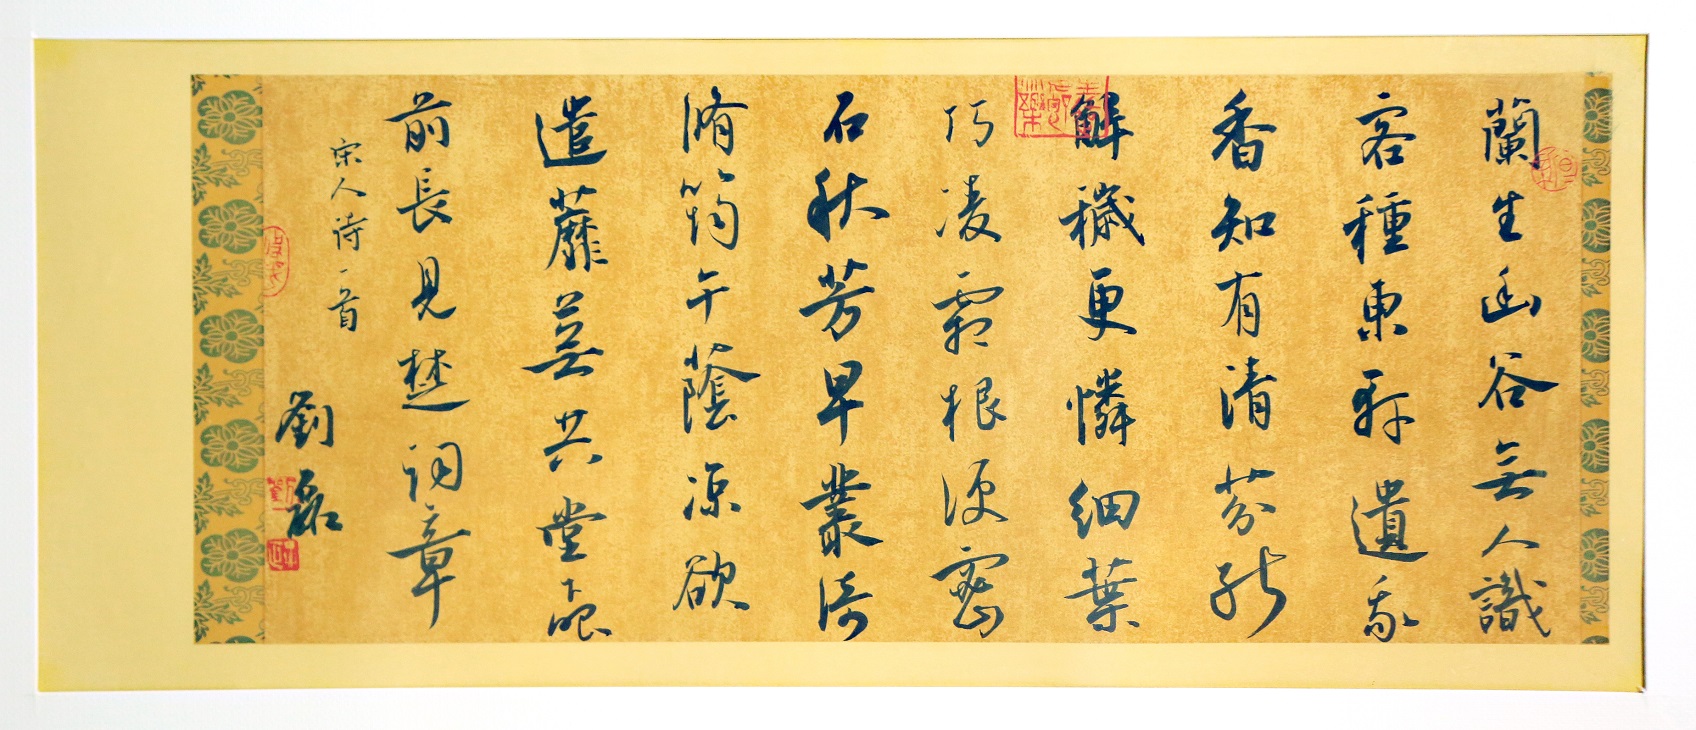 蘭生幽谷無人識
客種東軒遺我
香知有清芬能
解穢更憐細葉
巧凌霜根便密
石秋芳早叢倚
脩筠午蔭涼欲
遣蘼蕪共堂下眼
前長見楚詞章
宋人詩一首
劉磊